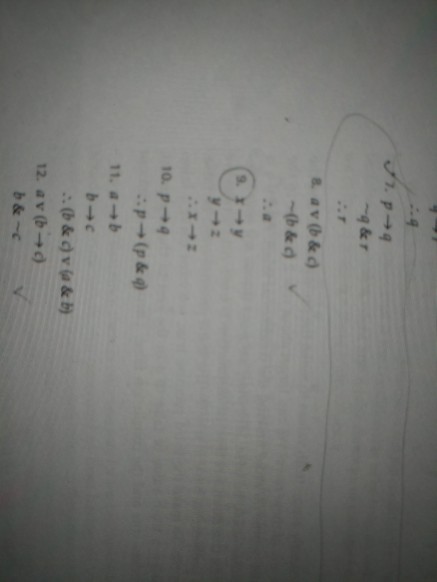 ∴ q
7. p → q
~q & r
∴ r
8. a v (b & c)
~(b & c)
∴ a
9. x → y
y → z
∴ x → z
10. p → q
∴ p → (p & q)
11. a → b
b → c
∴ (b & c) v (a & b)
12. a v (b → c)
b & ~c